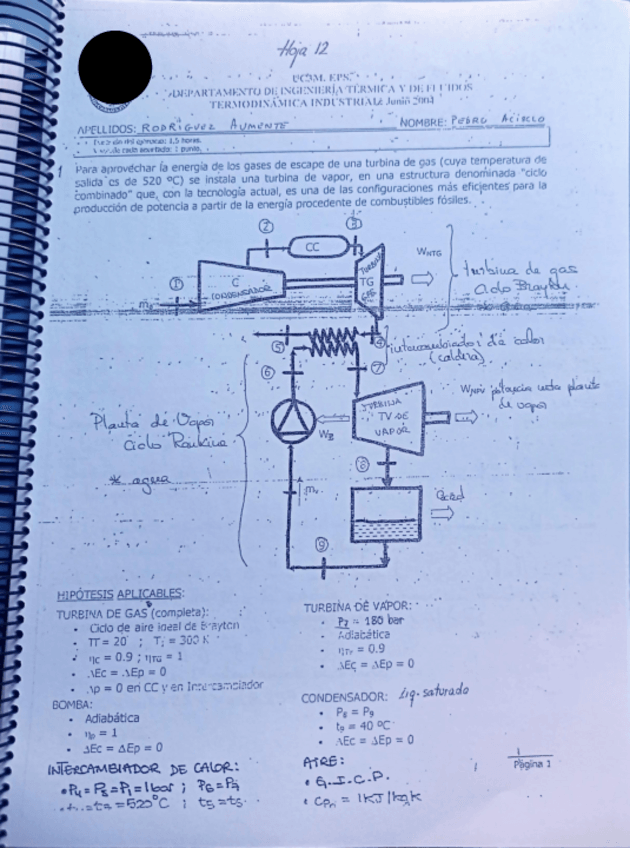 Hoja 12
UCOM. EPS.
DEPARTAMENTO DE INGENIERÍA TÉRMICA Y DE FLUIDOS
TERMODINÁMICA INDUSTRIAL Junio 2004
APELLIDOS: RODRÍGUEZ AUMENTE NOMBRE: PEDRO ACISCLO
1,5 horas.
1 punto.
1 Para aprovechar la energía de los gases de escape de una turbina de gas (cuya temperatura de
salida es de 520 ºC) se instala una turbina de vapor, en una estructura denominada "ciclo
combinado" que, con la tecnología actual, es una de las configuraciones más eficientes para la
producción de potencia a partir de la energía procedente de combustibles fósiles.
2
3
CC
1
C
CONDENSADOR
TURBINA
TG
GAS
WNTG
turbina de gas
ciclo Brayton
5
4
intercambiador de calor
(caldera)
6
7
Planta de Vapor
Ciclo Rankine
* agua
WB
TURBINA
TV DE
VAPOR
potencia neta planta
de vapor
8
Qced
9
HIPÓTESIS APLICABLES:
TURBINA DE GAS (completa):
• Ciclo de aire ideal de Brayton
• TT = 20 ; T1 = 300 K
• ηC = 0.9 ; ηTG = 1
• ΔEc = ΔEp = 0
• Δp = 0 en CC y en Intercambiador
BOMBA:
• Adiabática
• ηB = 1
• ΔEc = ΔEp = 0
INTERCAMBIADOR DE CALOR:
• P4 = P5 = P1 = 1 bar ; P6 = P7
= 520ºC ; t5 = t6
TURBINA DE VAPOR:
• P7 = 180 bar
• Adiabática
• ηTV = 0.9
• ΔEc = ΔEp = 0
CONDENSADOR: Liq. saturado
• P8 = P9
• t9 = 40 ºC
• ΔEc = ΔEp = 0
AIRE:
• G.I.C.P.
• CPa = 1 KJ/kgK
1
Página 1